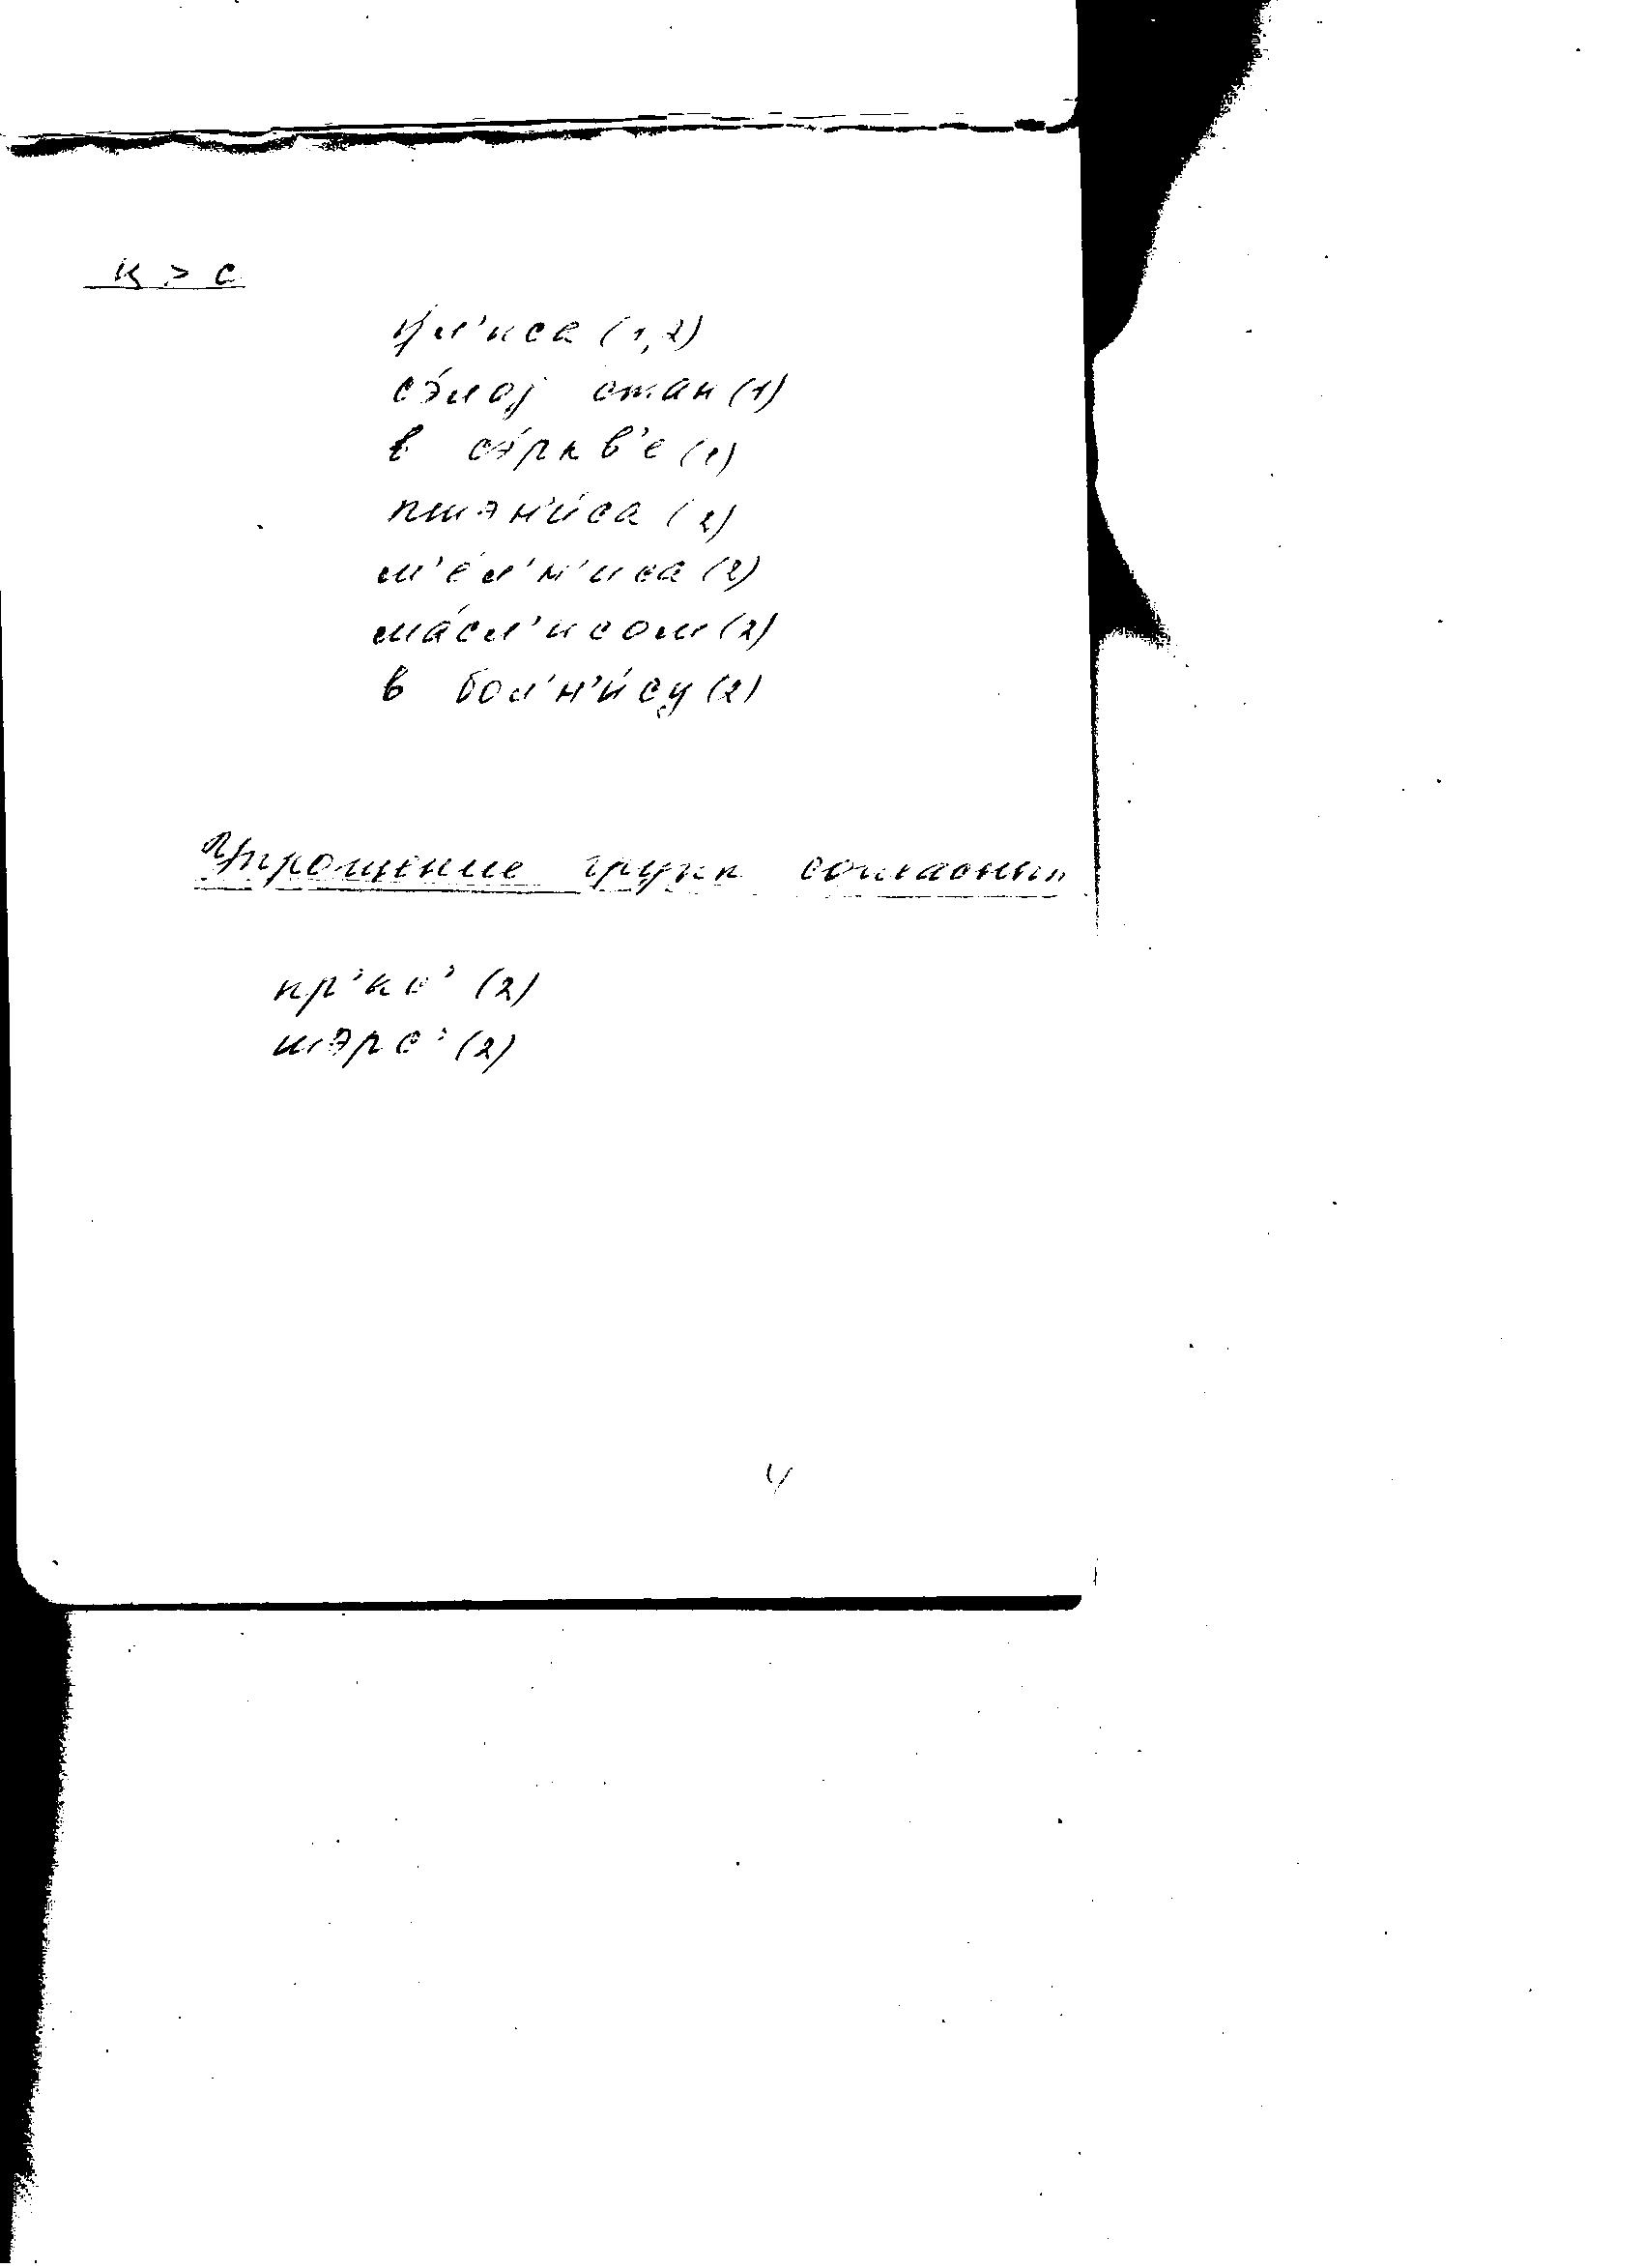 ц > с
у́л'иса (1,2)
сэ́лой стан (1)
в сэ́ркв'е (1)
пшэн'и́са (2)
м'е́л'н'иса (2)
ма́сл'исом (2)
в бол'н'и́су (2)
Упрощение групп согласных
шэрс' (2)
4